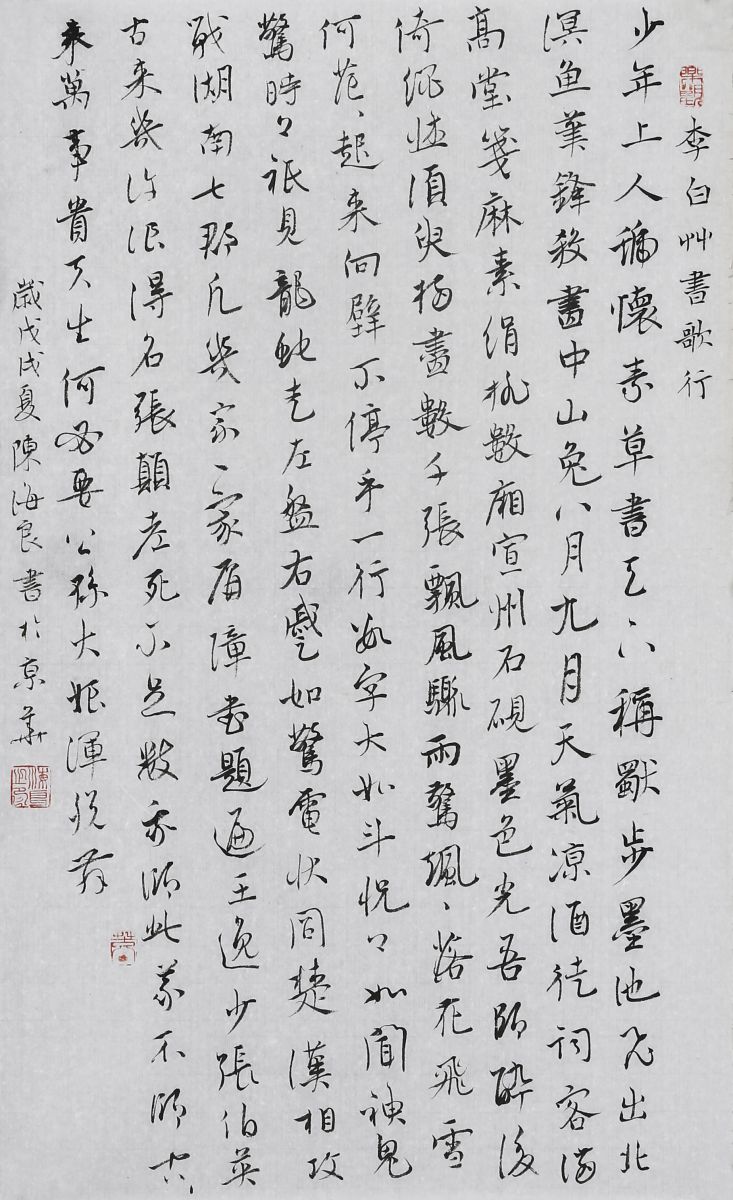 李白艸書歌行
少年上人號懷素草書天下稱獨步墨池飛出北
溟魚筆鋒殺盡中山兔八月九月天氣凉酒徒詞客滿
高堂箋麻素絹排數廂宣州石硯墨色光吾師醉後
倚繩牀須臾掃盡數千張飄風驟雨驚颯、落花飛雪
何茫、起來向壁不停手一行數字大如斗怳々如聞神鬼
驚時々祇見龍蛇走左盤右蹙如驚電狀同楚漢相攻
戰湖南七郡凡幾家、家屏障書題遍王逸少張伯英
古來幾許浪得名張顛老死不足數我師此義不師古、
來萬事貴天生何必要公孫大娘渾脫舞
歲戊戌夏陳海良書於京華